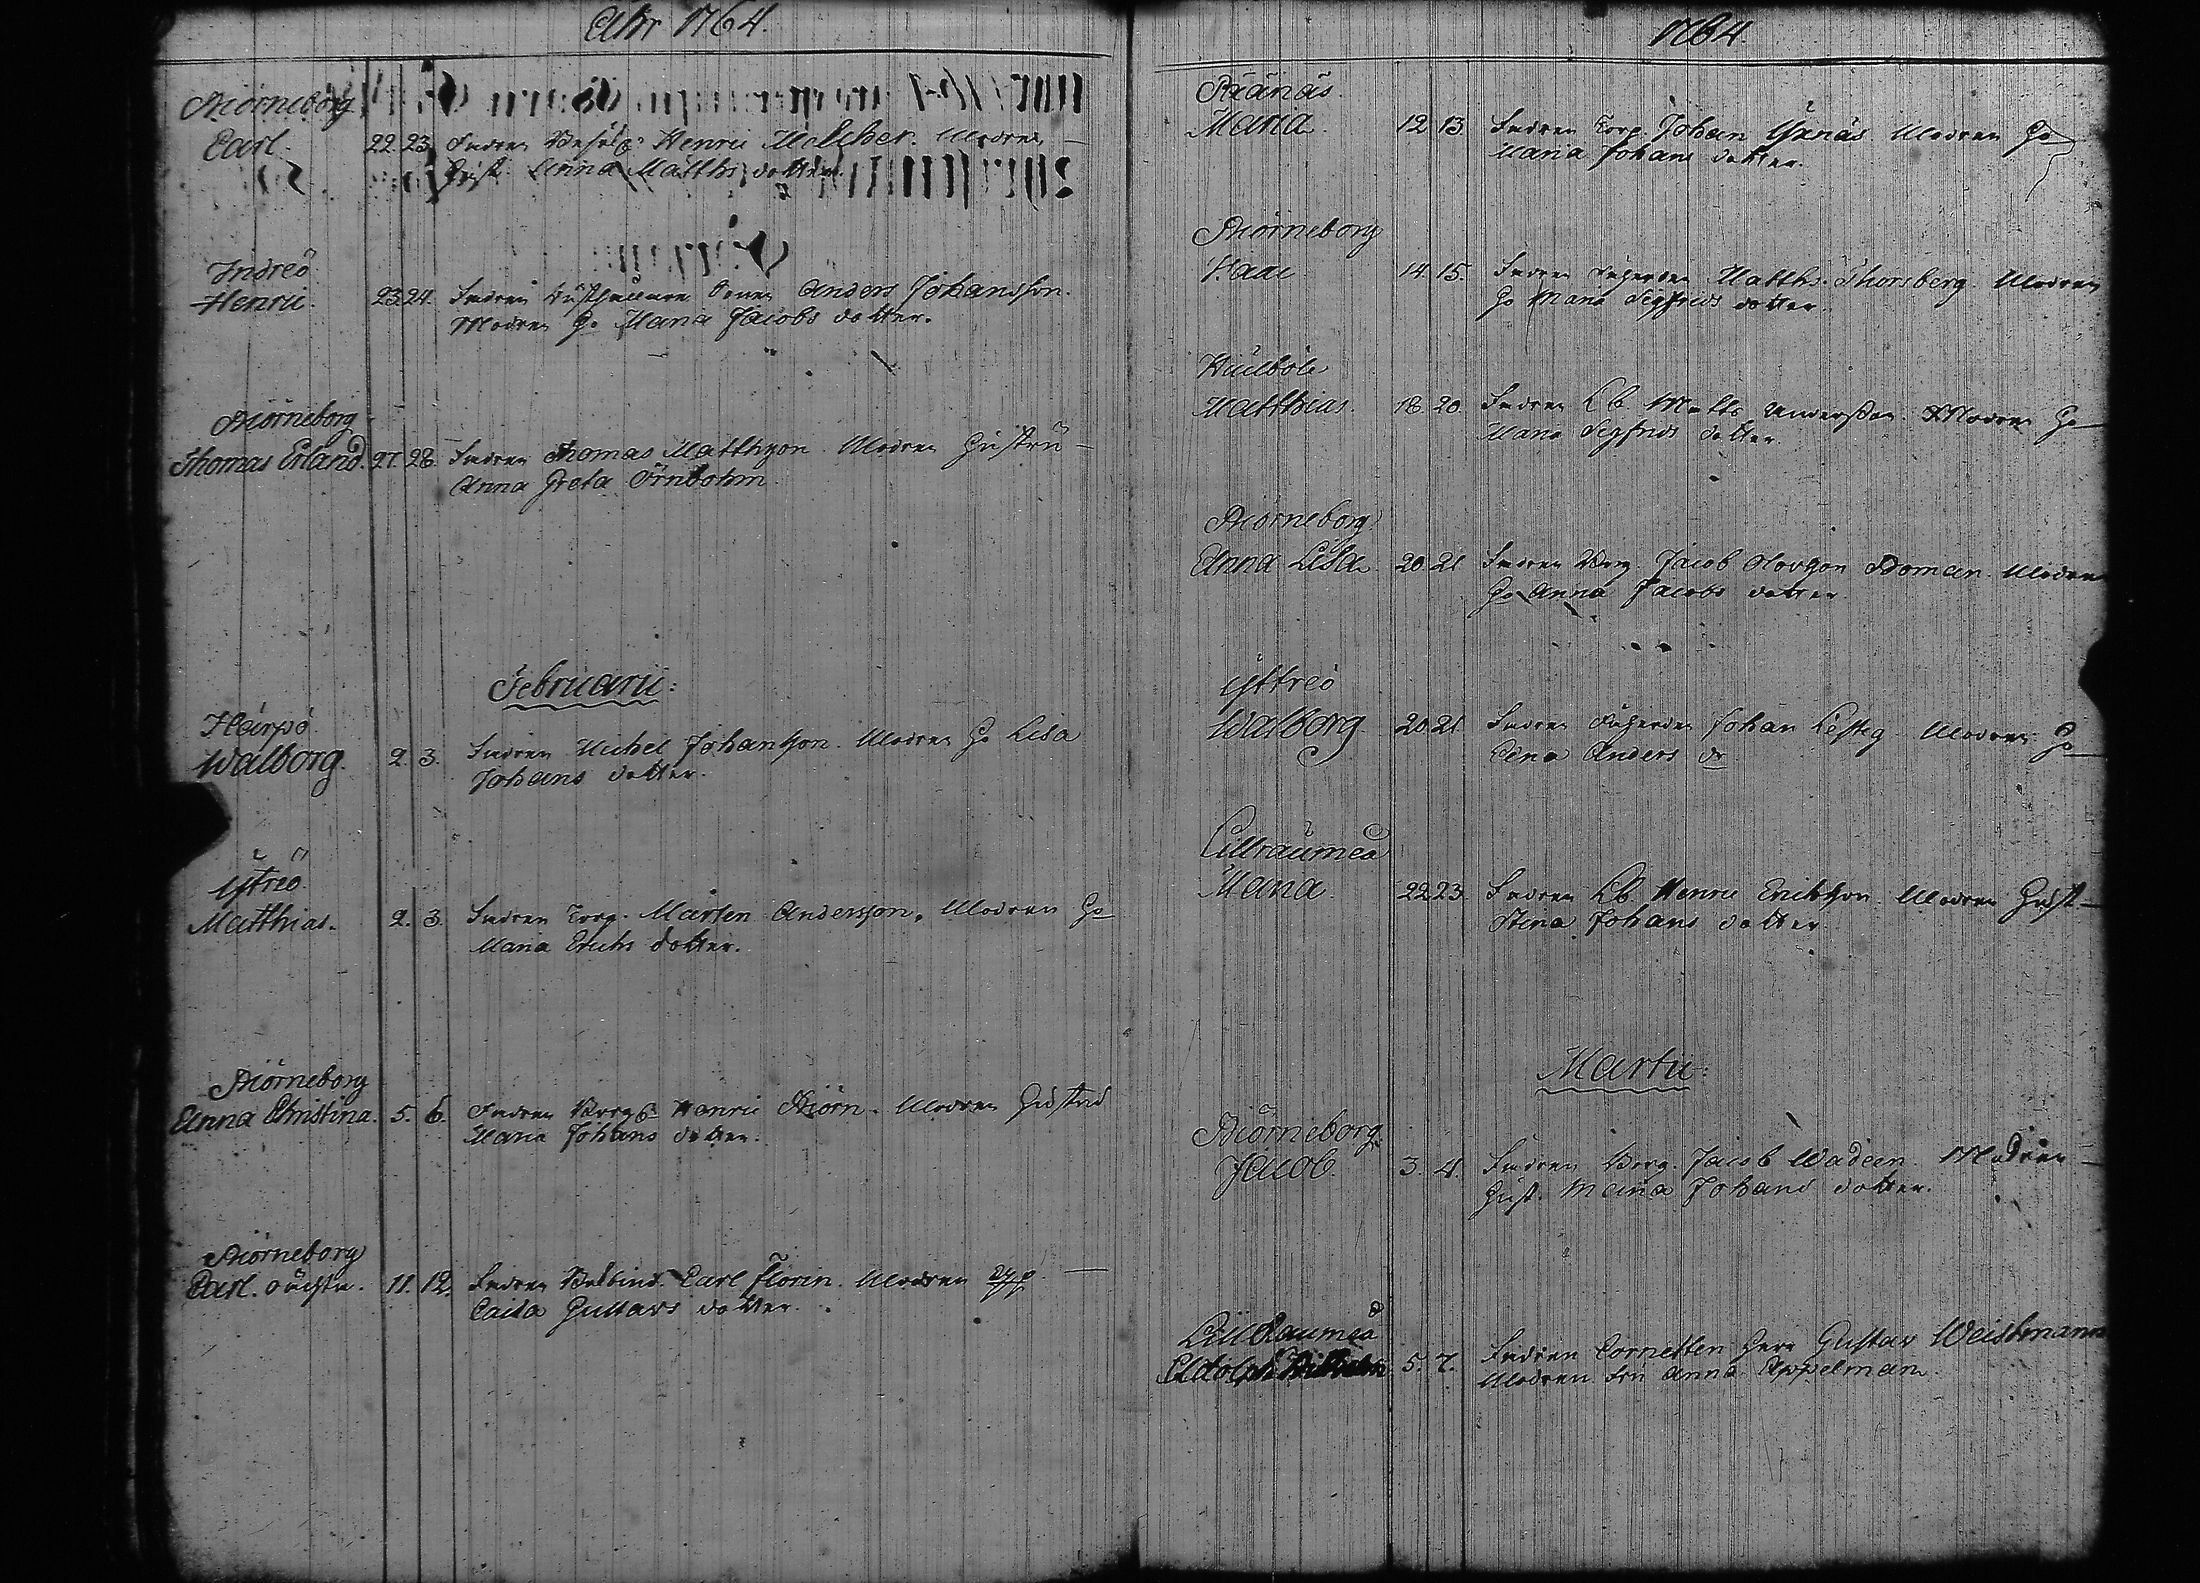 Ahr 1764.
Biörneborg
Carl. 22. 23. Fadren Henric Melcher. Modren
Hust. Anna Matths dotter.
Indreö
Henric. 23. 24. Fadren Anders Johansson.
Modren H. Maria Jacobs dotter.
Biörneborg
Thomas Erland. 27. 28. Fadren Thomas Matthson. Modren Hustru
Anna Greta Örnbohm.
Februarii:
Heirpö
Walborg. 2. 3. Fadren Michel Johansson. Modren H. Lisa
Johans dotter.
Ytreö
Matthias. 2. 3. Fadren Torp. Mårten Andersson. Modren H.
Maria Erichs dotter.
Biörneborg
Anna Christina. 5. 6. Fadren Borg. Henric Biörn. Modren Hustru
Maria Johans dotter.
Biörneborg
Carl. oächta. 11. 12. Fadren Carl Florin. Modren
Caisa Gustavs dotter.
1764.
Räänäs
Maria. 12. 13. Fadren Torp. Johan Yxnäs. Modren H.
Maria Johans dotter.
Biörneborg
Isaac 14. 15. Fadren Matths. Thorsberg. Modren
H. Maria Segfrids dotter.
Hvilböle
Matthias. 18. 20. Fadren Lb. Matts Andersson. Modren H.
Maria Segfrids dotter.
Biörneborg
Anna Lisa. 20. 21. Fadren Borg. Jacob Boman. Modren
H. Anna Jacobs dotter
Yttreö
Walborg. 20. 21. Fadren Johan Modren H.
Anders dr
Lillraumeå
Maria. 22. 23. Fadren Lb. Henric Ericksson. Modren Hust.
Stina Johans dotter
Martii:
Biörneborg.
Jacob. 3. 4. Fadren Borg. Jacob Wadeen. Modren
Hust. Maria Johans dotter.
Lillraumeå
Adolph Wilhelm 5. 7. Fadren Cornetten Herr Gustav Weidhmann
Modren Fru Anna Appelman.